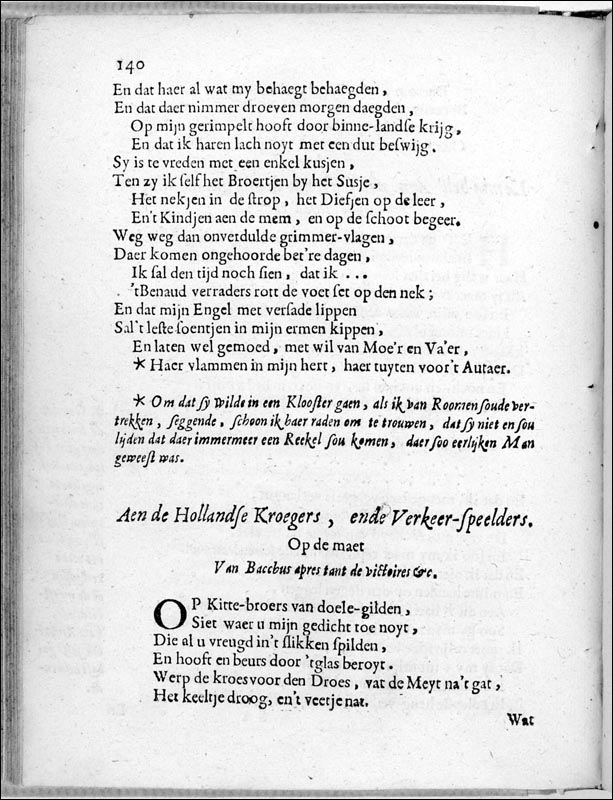 140
En dat haer al wat my behaegt behaegden,
En dat daer nimmer droeven morgen daegden,
Op mijn gerimpelt hooft door binne-landſe krijg,
En dat ik haren lach noyt met een dut beſwijg.
Sy is te vreden met een enkel kusjen,
Ten zy ik ſelf het Broertjen by het Susje,
Het nekjen in de ſtrop, het Diefjen op de leer,
En't Kindjen aen de mem, en op de ſchoot begeer.
Weg weg dan onverdulde grimmer-vlagen,
Daer komen ongehoorde bet're dagen,
Ik ſal den tijd noch ſien, dat ik ...
'tBenaud verraders rott de voet ſet op den nek;
En dat mijn Engel met verſade lippen
Sal't leſte ſoentjen in mijn ermen kippen,
En laten wel gemoed, met wil van Moe'r en Va'er,
* Haer vlammen in mijn hert, haer tuyten voor't Autaer.
* Om dat ſy wilde in een Klooſter gaen, als ik van Roomen ſoude ver-
trekken, ſeggende, ſchoon ik haer raden om te trouwen, dat ſy niet en ſou
lijden dat daer immermeer een Reekel ſou komen, daer ſoo eerlijken Man
geweeſt was.
Aen de Hollandſe Kroegers, ende Verkeer-ſpeelders.
Op de maet
Van Bacchus apres tant de victoires &c.
OP Kitte-broers van doele-gilden,
Siet waer u mijn gedicht toe noyt,
Die al u vreugd in't ſlikken ſpilden,
En hooft en beurs door 'tglas beroyt.
Werp de kroes voor den Droes, vat de Meyt na't gat,
Het keeltje droog, en't veetje nat.
Wat